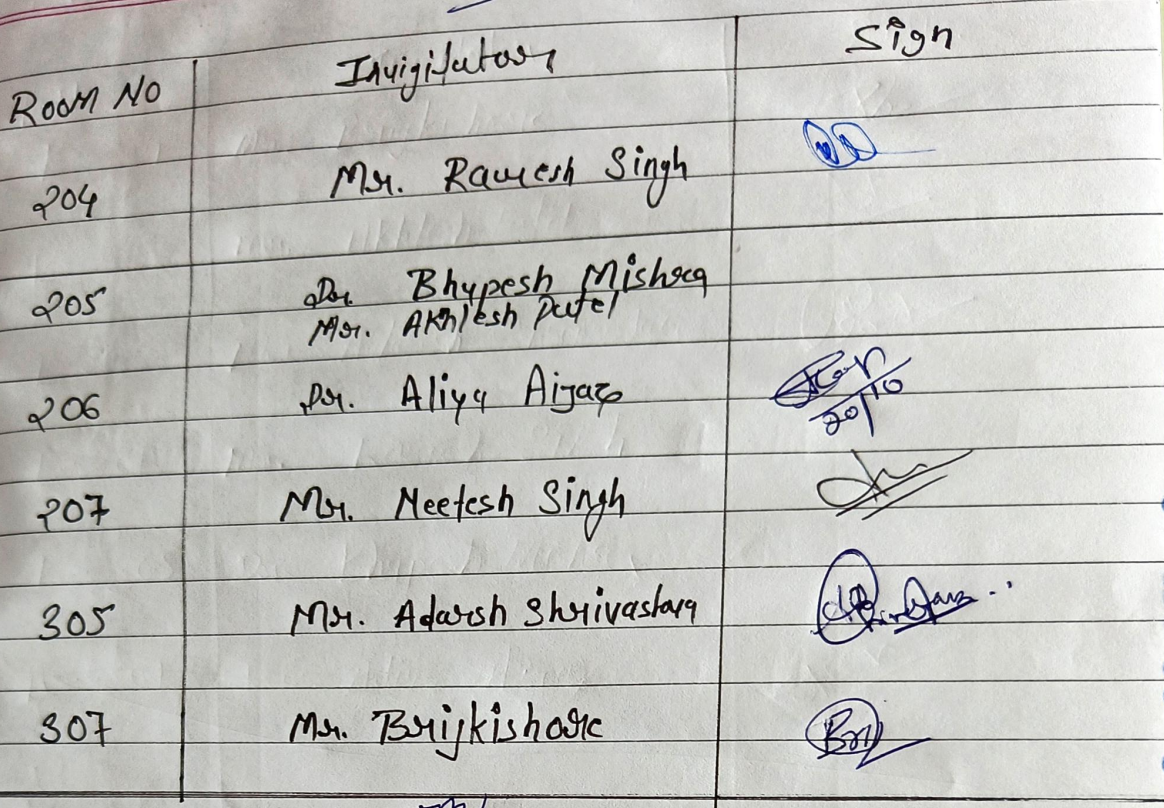 Room No Invigilator Sign
204 Mr. Ramesh Singh
205 Dr. Bhupesh Mishra
Mr. Akhlesh Patel
206 Dr. Aliya Aijaz
20/10
207 Mr. Neetesh Singh
305 Mr. Adarsh Shrivastava
307 Mr. Brijkishore